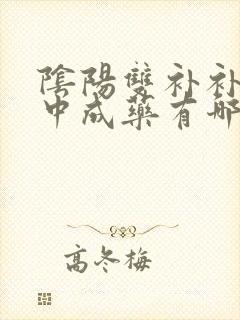 陰陽雙补补
中成藥有哪
高冬梅